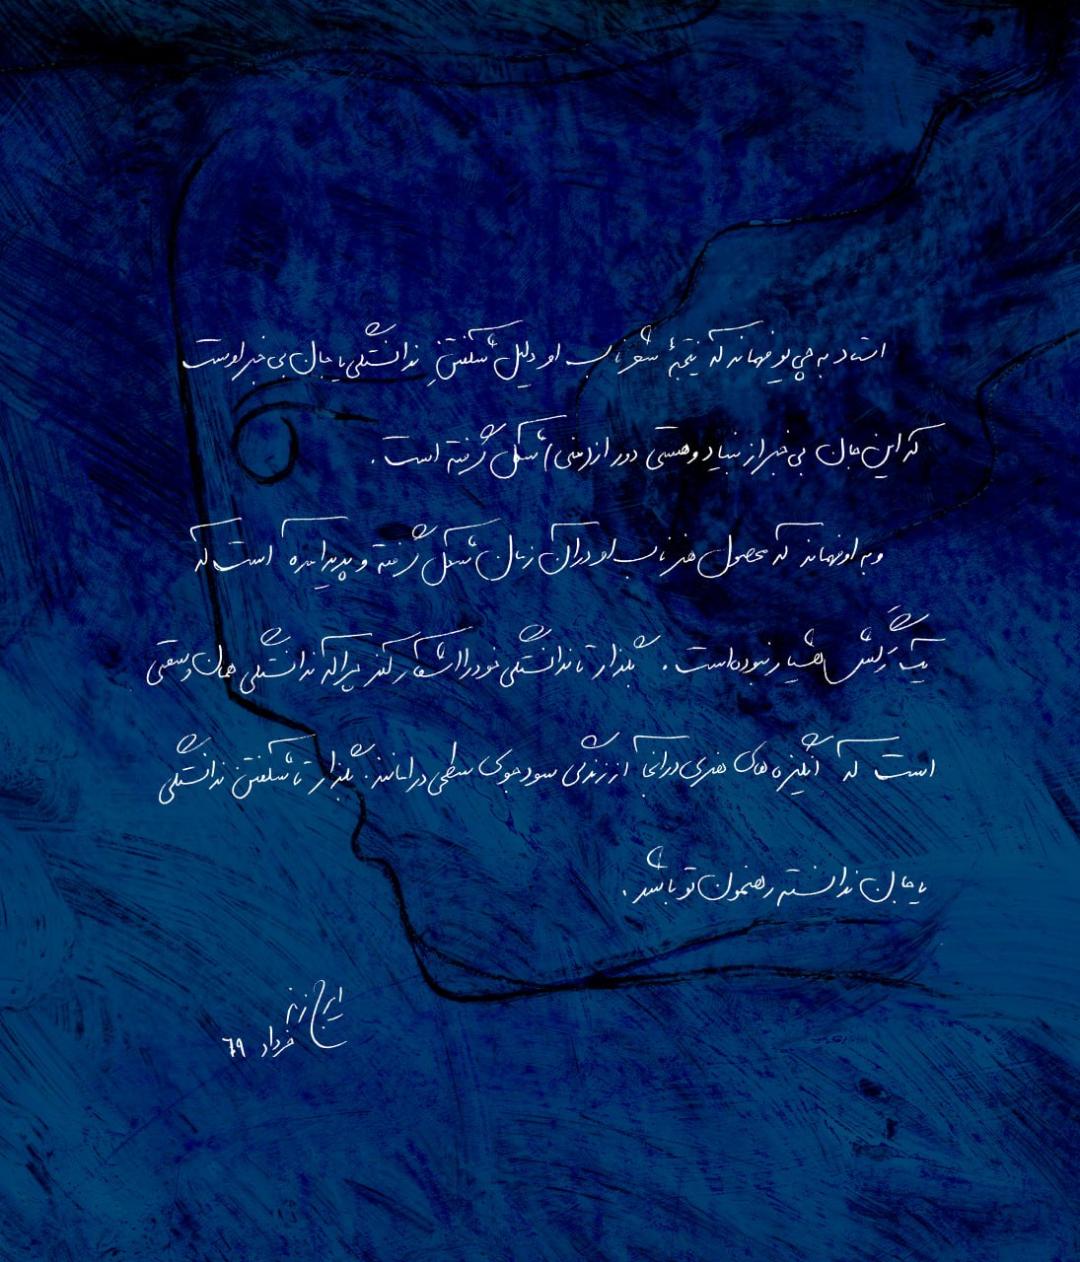 استاد به چی یو فهماند که نتیجهٔ شعر ناب او دلیل شگفتنِ ندانستگی یا جان بی خبر اوست
که این جان بی خبر از بنیاد و هستی دور از (منی) شکل گرفته است.
و به او فهماند که محصول هنر ناب او در آن زمان شکل گرفته و پدید آمده است که
یک نَگَرش هشیار نبوده است. بگذار تا ندانستگی خود را آشکار کند چرا که ندانستگی همان وسعتی
است که انگیزه های هنری در آنجا از زندگی سودجوی سطحی در امانند. بگذار تا شگفتن ندانستگی
یا جان ندانسته رهنمون تو باشد.
ایرج زند
خرداد ۷۹